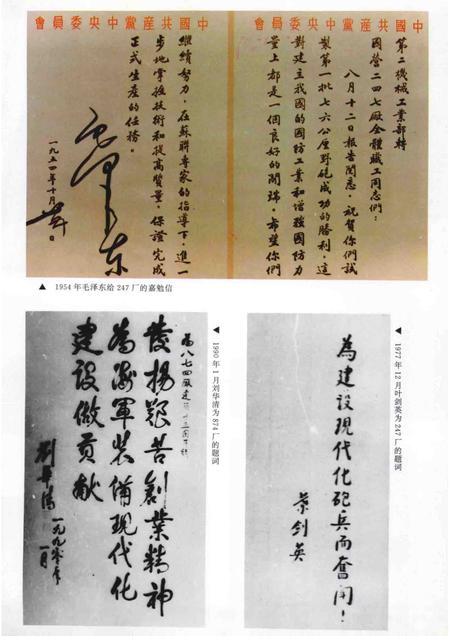 中國共產黨中央委員會
中國共產黨中央委員會
第二機械工業部轉
國營二四七廠全體職工同志們：
八月十二日報告閱悉，祝賀你們試
製第一批七六公厘野砲成功的勝利，這
對建立我國的國防工業和增強國防力
量上都是一個良好的開端。希望你們
繼續努力，在蘇聯專家的指導下，進一
步地掌握技術和提高質量，保證完成
正式生產的任務。
毛泽东
一九五四年十月 日
▲ 1954年毛泽东给247厂的嘉勉信
▲ 1977年12月叶剑英为247厂的题词
為建设現代化砲兵而奮鬥！
葉剑英
▲ 1990年1月刘华清为874厂的题词
為八七四廠建
發揚艱苦創業精神
為海軍装備現代化
建設做貢献
劉華清
一九九零年
一月